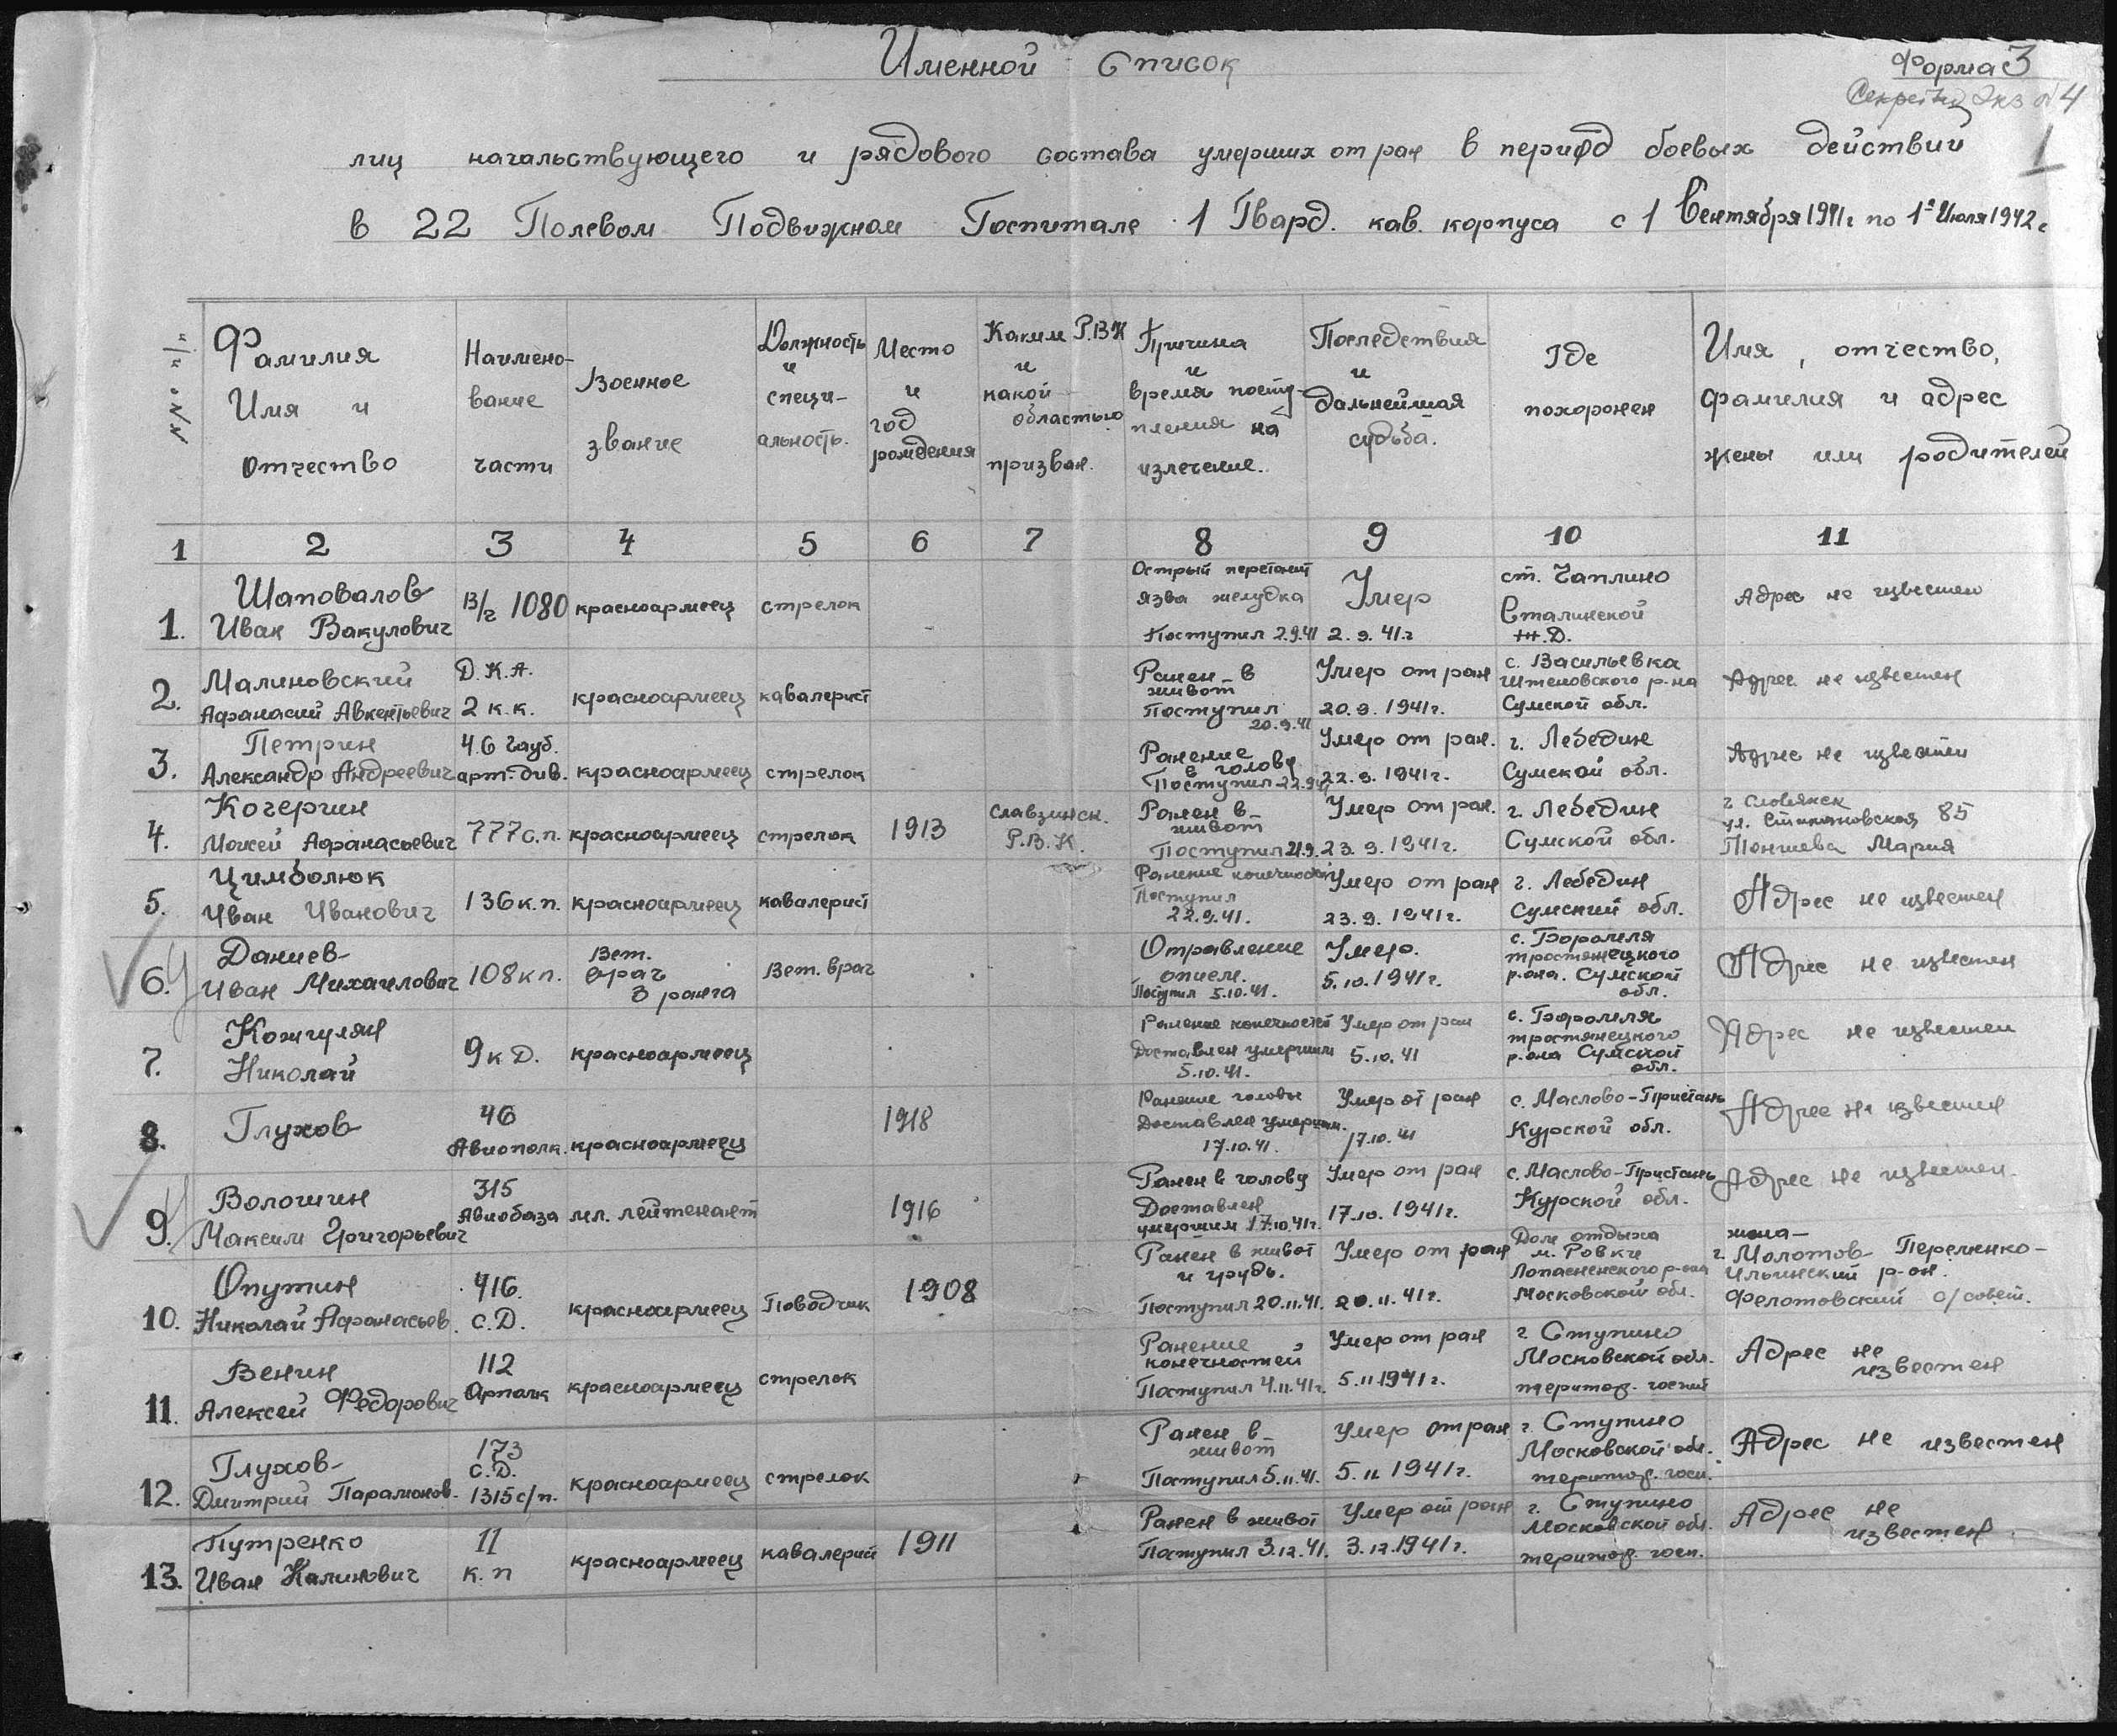 Именной список
Форма 3
Секретно Экз № 4
лиц начальствующего и рядового состава умерших от ран в период боевых действий
1
в 22 Полевом Подвижном Госпитале 1 Гвард. кав. корпуса с 1 Сентября 1941г по 1е Июля 1942г
№№ п/п
Фамилия
Имя и
Отчество
Наимено-
вание
части
Военное
звание
Должность
и
специ-
альность.
Место
и
год
рождения
Каким Р.В.К
и
какой
областью
призван.
Причина
и
время посту-
пления на
излечение.
Последствия
и
дальнейшая
судьба.
Где
похоронен
Имя, отчество,
фамилия и адрес
жены или родителей
1 2 3 4 5 6 7 8 9 10 11
1.
Шаповалов
Иван Вакулович
в/ч 1080
красноармеец
стрелок
Острый
язва желудка
Поступил 2.9.41
Умер
2.9.41г
ст. Чаплино
Сталинской
Ж.Д.
Адрес не известен
2.
Малиновский
Афанасий Авкентьевич
Д.К.А.
2 к.к.
красноармеец
кавалерист
Ранен в
живот
Поступил
20.9.41
Умер от ран
20.9.1941г.
с. Васильевка
Штеповского р-на
Сумской обл.
Адрес не известен
3.
Петрин
Александр Андреевич
4.6 гауб.
арт-див.
красноармеец
стрелок
Ранение
в голову
Поступил 22.9.41
Умер от ран.
22.9.1941г.
г. Лебедин
Сумской обл.
Адрес не известен
4.
Кочергин
Моисей Афанасьевич
777 с.п.
красноармеец
стрелок
1913
Славзинск.
Р.В.К.
Ранен в
живот
Поступил 21.9.
Умер от ран.
23.9.1941г.
г. Лебедин
Сумской обл.
г Словянск
ул. 85
Мария
5.
Цимболюк
Иван Иванович
136 к.п.
красноармеец
кавалерист
Ранение конечностей
Поступил
22.9.41.
Умер от ран
23.9.1941г.
г. Лебедин
Сумский обл.
Адрес не известен
6.
Даниев
Иван Михаилович
108 к п.
Вет.
врач
3 ранга
Вет. врач
Отравление
опием.
Поступил 5.10.41.
Умер.
5.10.1941г.
с. Боромля
тростянецкого
р-она. Сумской
обл.
Адрес не известен
7.
Кожгулян
Николай
9 к Д.
красноармеец
Ранение конечностей
Доставлен умершим
5.10.41.
Умер от ран
5.10.41
с. Боромля
тростянецкого
р-она Сумской
обл.
Адрес не известен
8.
Глухов
46
Авиополк.
красноармеец
1918
Ранение головы
Доставлен умершим.
17.10.41.
Умер от ран
17.10.41
с. Маслово-Пристань
Курской обл.
Адрес не известен
9.
Волошин
Максим Григорьевич
315
Авиобаза
мл. лейтенант
1916
Ранен в голову
Доставлен
умершим 17.10.41г.
Умер от ран
17.10.1941г.
с. Маслово-Пристань
Курской обл.
Адрес не известен.
10.
Опутин
Николай Афанасьев.
416.
С.Д.
красноармеец
Поводчик
1908
Ранен в живот
и грудь.
Поступил 20.11.41.
Умер от ран
20.11.41г.
Дом отдыха
м. Ровки
Лопасненского р-она
Московской обл.
жена-
г. Молотов Переменко-
Ильинский р-он.
Фелотовский с/совет.
11.
Венин
Алексей Федорович
112
Арполк
красноармеец
стрелок
Ранение
конечностей
Поступил 4.11.41г.
Умер от ран
5.11.1941г.
г Ступино
Московской обл.
територ. госпит
Адрес не
известен
12.
Глухов
Дмитрий Парамонов.
173
С.Д.
1315 с/п.
красноармеец
стрелок
Ранен в
живот
Поступил 5.11.41.
Умер от ран
5.11 1941г.
г. Ступино
Московской обл.
територ. госп.
Адрес не известен
13.
Путренко
Иван Калинович
11
к.п
красноармеец
кавалерий
1911
Ранен в живот
Поступил 3.12.41.
Умер от ран
3.12.1941г.
г. Ступино
Московской обл.
територ. госп.
Адрес не
известен.